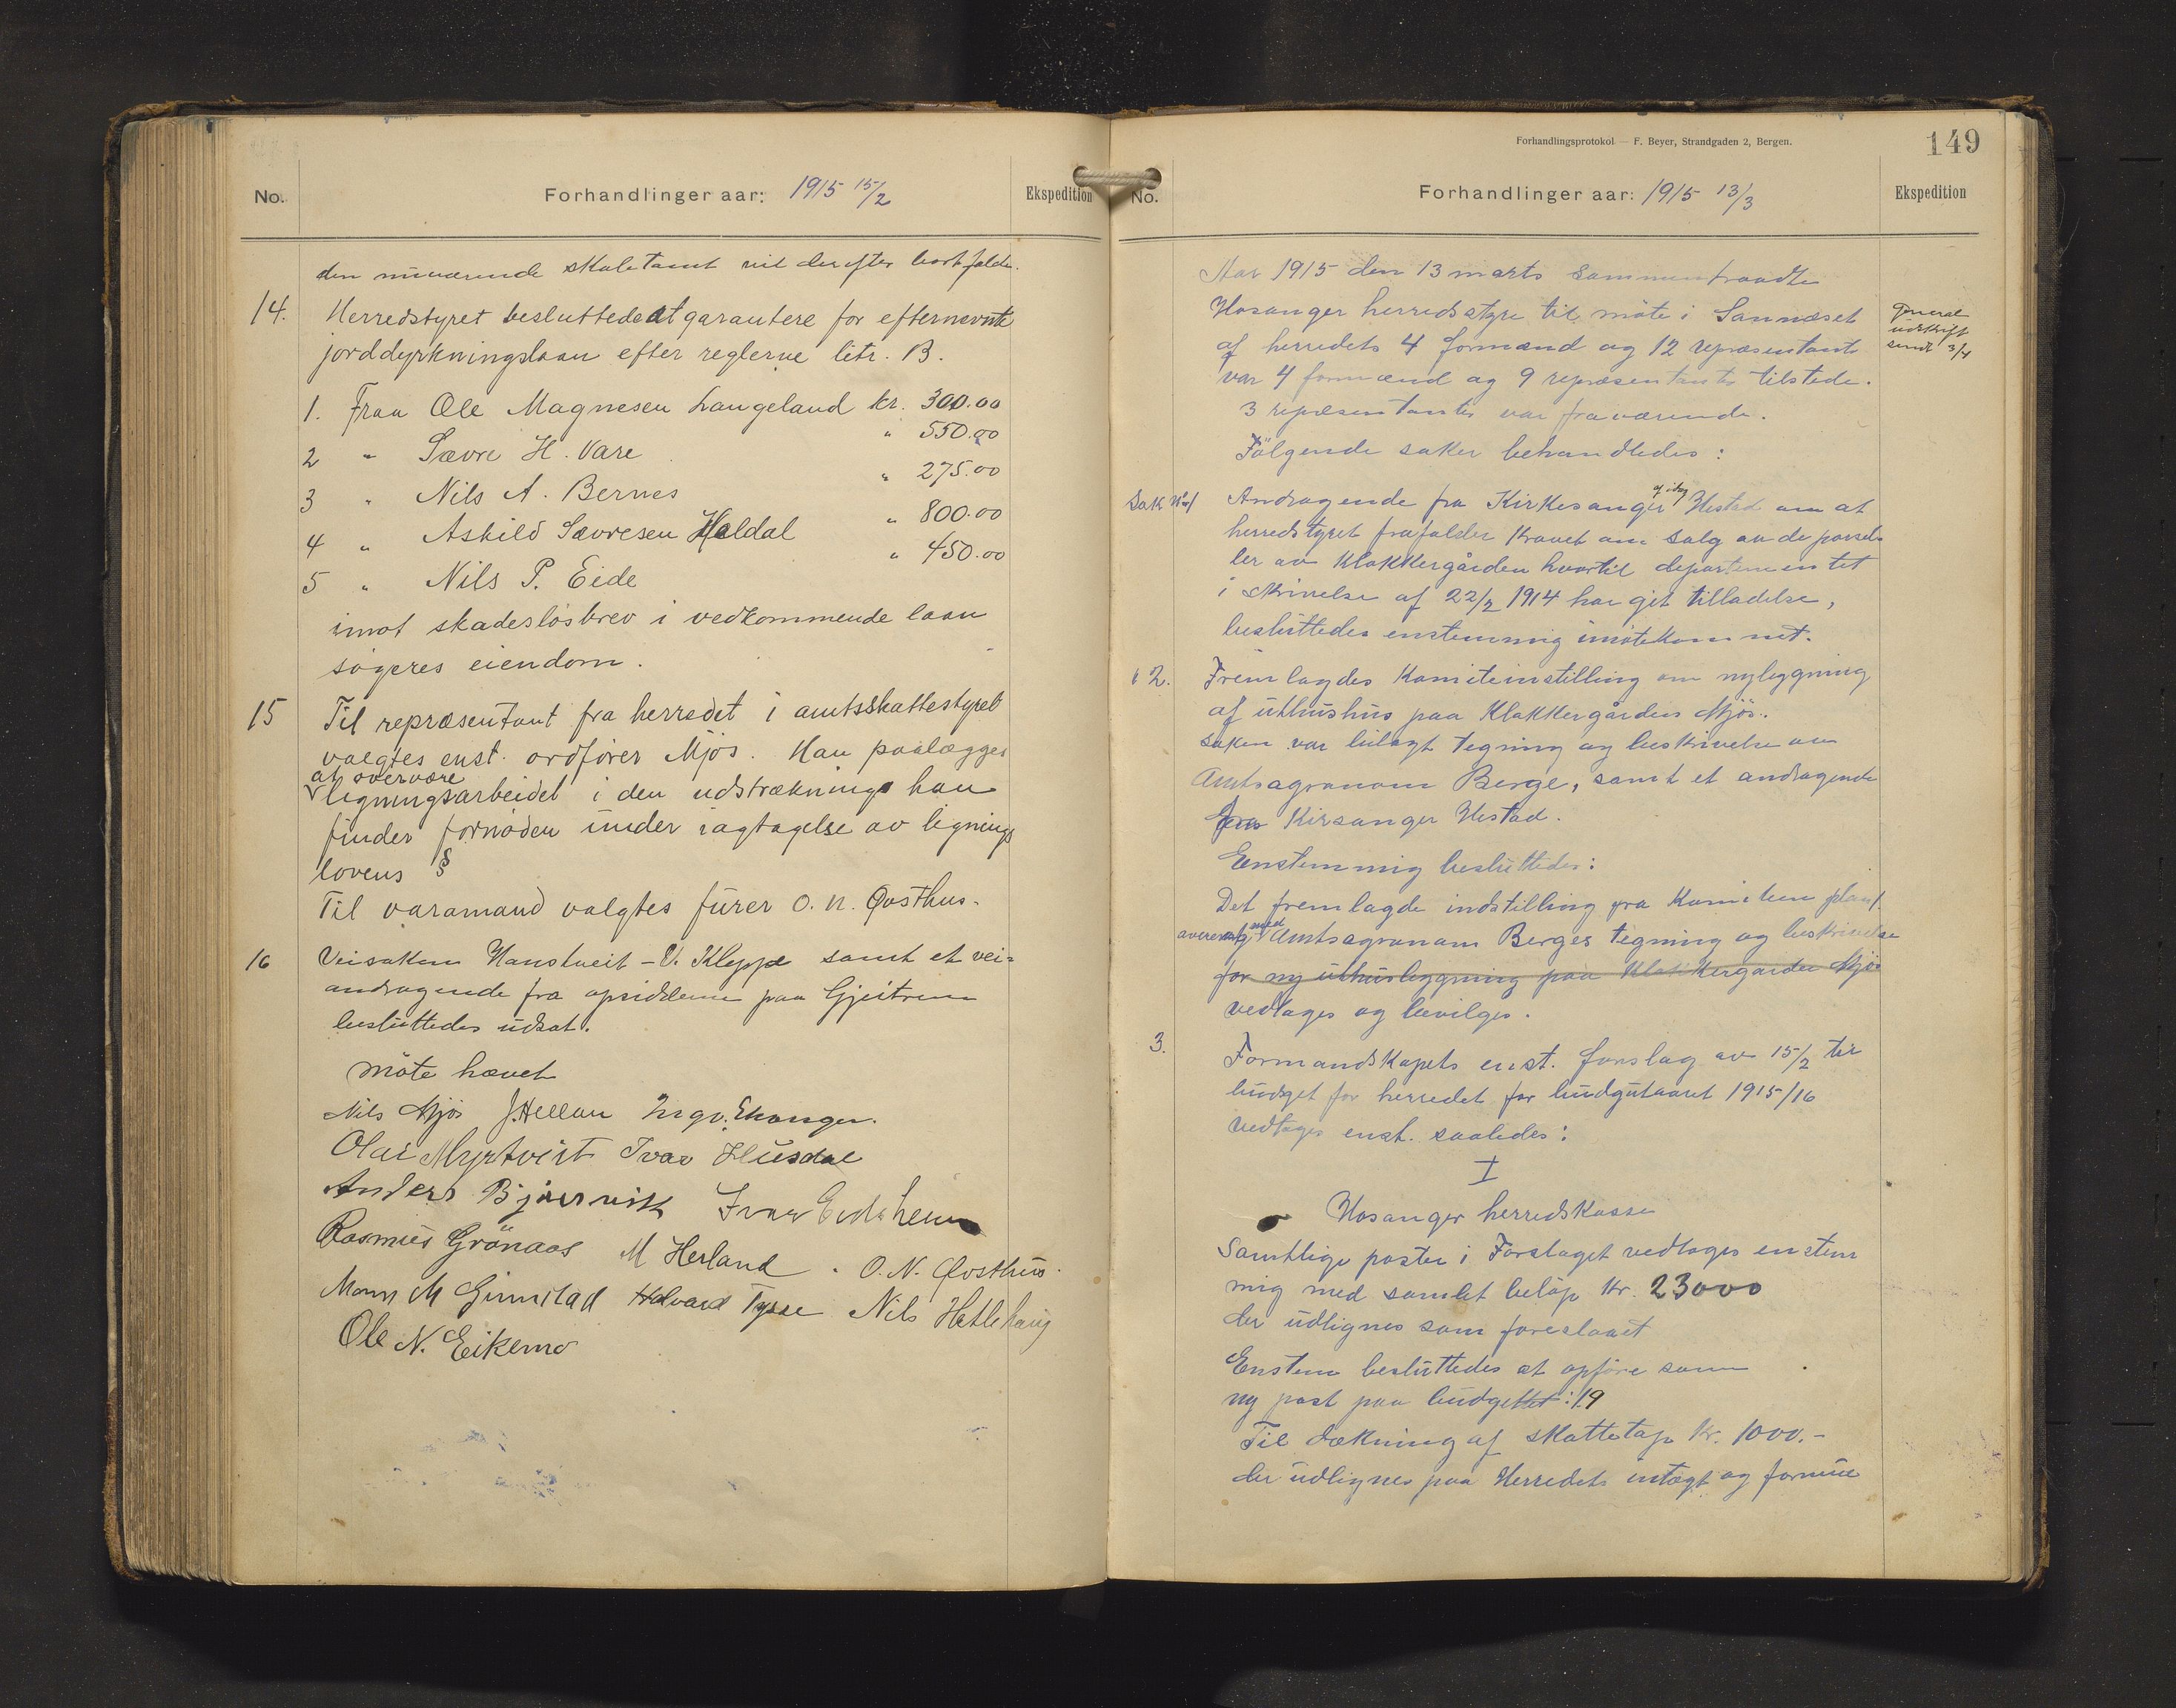 No. Forhandlinger aar: 1915 15/2 Ekspedition
den nuværende skoletomt vil derefter bortfalde.
14. Herredstyret besluttede at garantere for efternevnte
jorddyrkningslaan efter reglerne litr. B.
1. Fraa Ole Magnesen Langeland kr. 300.00
2 " Sævre H. Vare " 550.00
3 " Nils A. Bernes " 275.00
4 " Askild Sævresen Haldal " 800.00
5 " Nils P. Eide " 450.00
imot skadesløsbrev i vedkommende laan
søgeres eiendom.
15 Til repræsentant fra herredet i amtsskattestyret
valgtes enst. ordfører Mjøs. Han paalægges
at overvære
ligningsarbeidet i den udstrækning han
finder fornøden under iagtagelse av lignings
lovens §
Til varamand valgtes fürer O. N. Qvsthus.
16 Veisaken Hanstveit - V. Kleppe samt et vei=
andragende fra opsidderne paa Gjeitrem
besluttedes udsat.
Møte hævet
Nils Mjøs J. Hellan Ingv. Ekanger.
Olai Myrtveit Ivar Husdal
Anders Bjørsvik Ivar Eidsheim
Rasmus Grönaas M Herland . O. N. Qvsthus.
Mons M Gimstad Halvard Tysse Nils Hatlehaug
Ole N. Eikemo
Forhandlingsprotokol — F. Beyer, Strandgaden 2, Bergen.
149
No. Forhandlinger aar: 1915 13/3 Ekspedition
Aar 1915 den 13 marts sammentraadte
Hosanger herredsstyre til møte i Sannæset
General
udskrift
sendt 3/4
af herredets 4 formænd og 12 repræsentanter
var 4 formænd og 9 repræsentanter tilstede.
3 repræsentanter var fraværende.
Følgende saker behandledes:
Sak No 1 Andragende fra Kirkesanger Hestad om at
herredstyret frafalder kravet om salg av de parsel-
ler av Klokkergården hvortil departementet
i skrivelse af 22/2 1914 har git tilladelse,
besluttedes enstemmig imøtekommet.
" 2. Fremlagdes Komiteinstilling om nybygning
af uthushus paa Klokkergården Mjøs.
saken var bilagt tegning og beskrivelse av
Amtsagronom Berge, samt et andragende
fra Kirsanger Hestad.
Enstemmig besluttedes:
Det fremlagde indstilling fra Komiteen
med
Amtsagronom Berges tegning og beskrivelse
for ny uthusbygning paa Klokkergarden Mjøs
vedtages og bevilges.
3. Formandskapets enst. forslag av 15/2 til
budget for herredet for budgetaaret 1915/16
vedtages enst. saaledes:
I
Hosanger herredskasse
Samtlige poster i Forslaget vedtages enstem
mig med samlet beløp kr. 23000
der udlignes som foreslaaet
Enstem besluttedes at opføre som
ny post paa budgettet: 19
Til dækning af skattetap kr. 1000.-
der udlignes paa Herredets intægt og formue